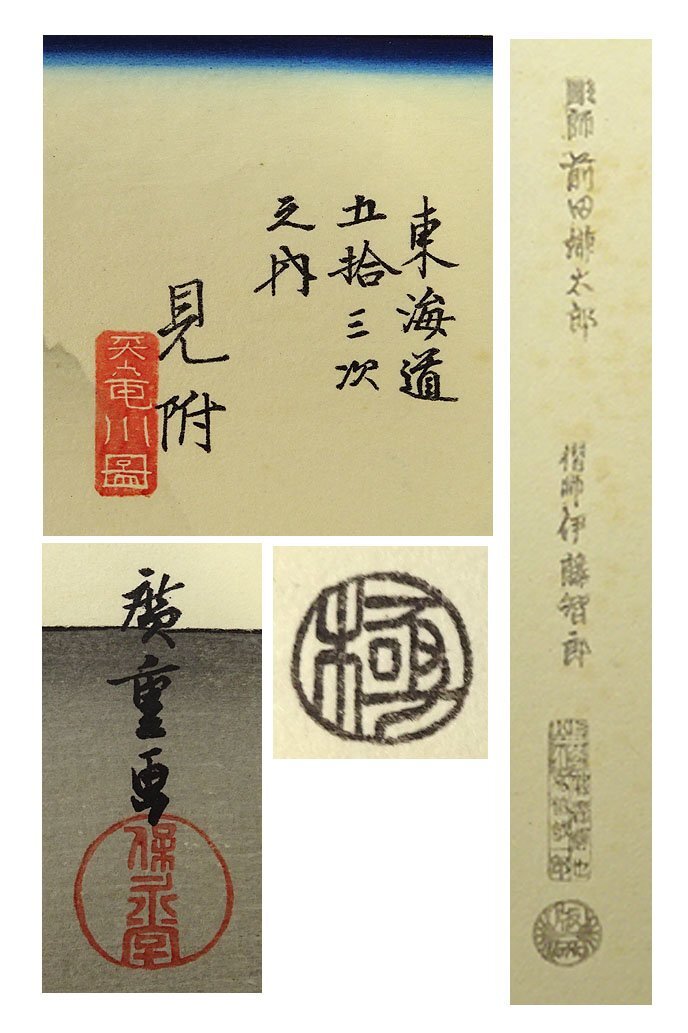 東海道
五拾三次
之内
見附
天竜川図
廣重画
保永堂
極
彫師 前田
摺師 伊藤智郎